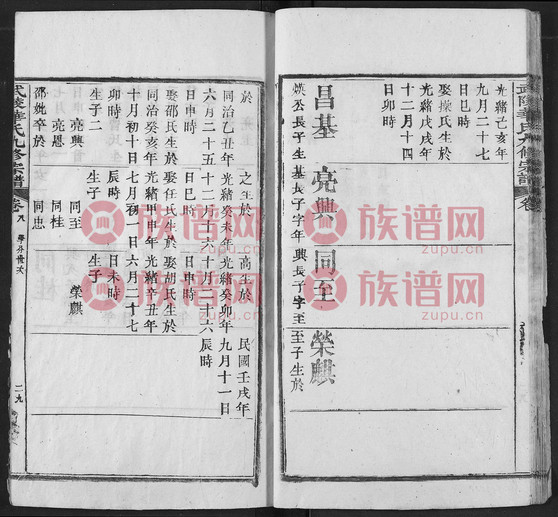 武陵華氏九修宗譜 卷
光緒己亥年
九月二十七
日巳時
娶 氏生於
光緒戊戌年
十二月十四
日卯時
昌基 亮興 同至 榮麒
煐公長子生 基長子字年 興長子字至 至子生於
於 之生於 高生於 民國壬戌年
同治乙丑年 光緒癸未年 光緒癸卯年 九月十一日
六月二十五 十二月十六 十月二十六 辰時
日申時 日巳時 日申時
娶邵氏生於 娶任氏生於 娶胡氏生於
同治癸亥年 光緒甲申年 光緒辛丑年
十月初十日 七月初一日 六月二十七
卯時 辰時 日未時
生子二 生子 生子
亮興 同至 榮麒
亮恩 同桂
邵姓卒於 同忠
武陵華氏九修宗譜 卷八 世次 二九
族谱网
zupu.cn
族谱网
zupu.cn
族谱网
zupu.cn
族谱网
zupu.cn